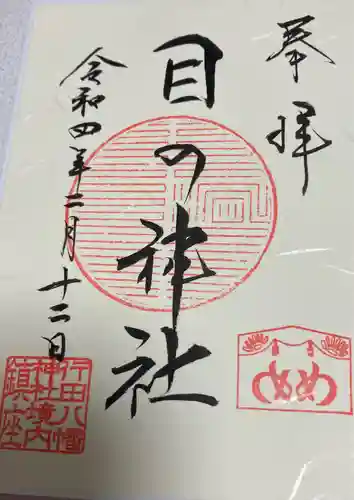 奉拝
目の神社
令和四年二月十二日
行田八幡
神社境内
鎮座
めめ